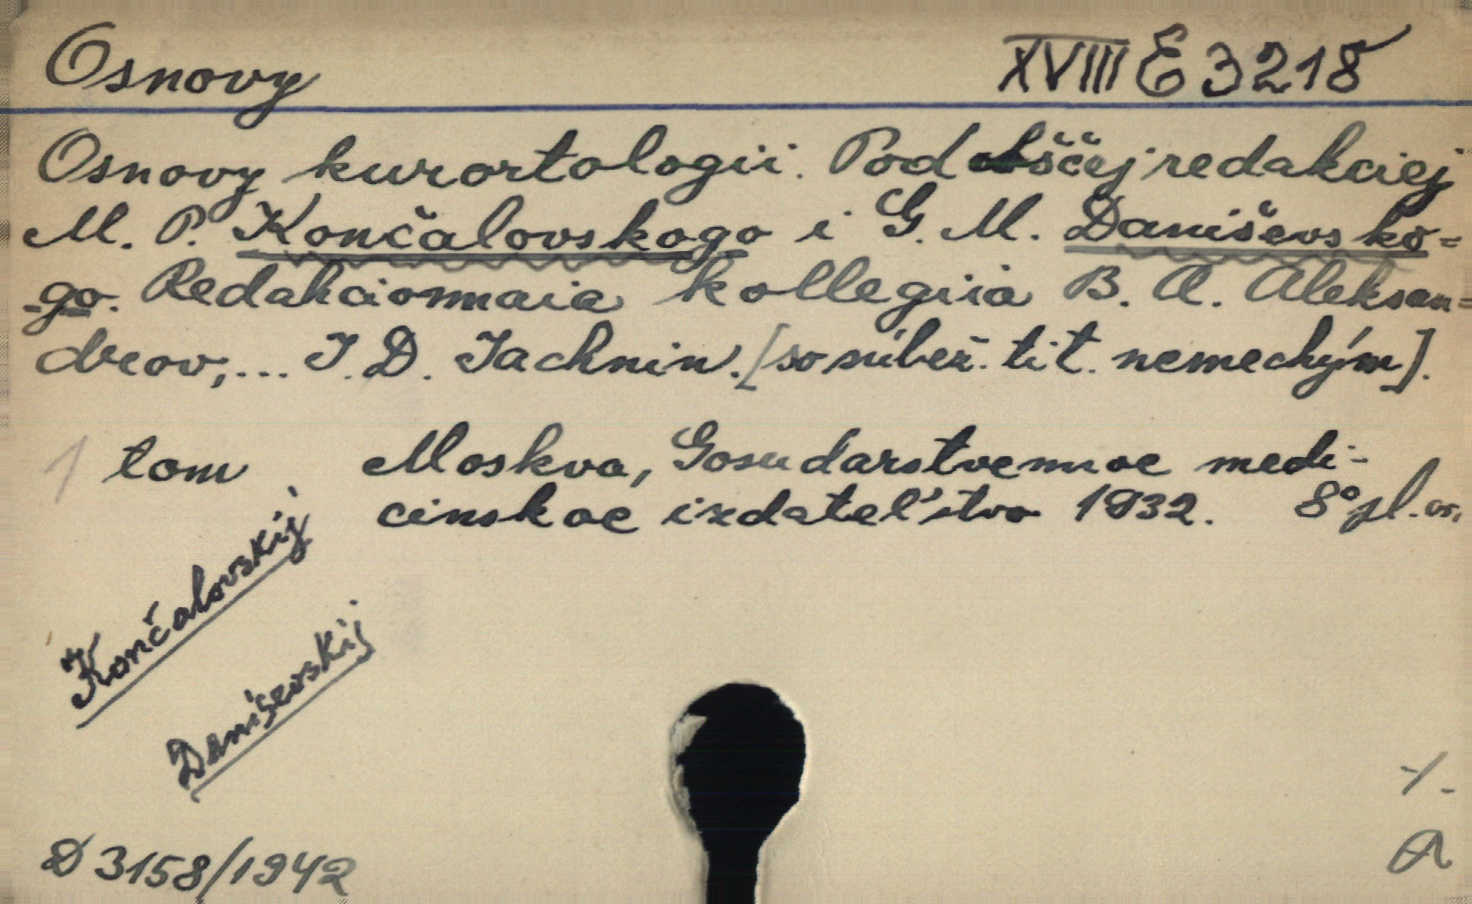 Osnovy XVIII E 3218
Osnovy kurortologii. Pod obščej redakciej
M. P. Končalovskogo i G. M. Daniševsko=
-go. Redakcionnaia kollegiia B. A. Aleksan=
drov,... I. D. Iachnin. [so súbež. tit. nemeckým].
1 tom Moskva, Gosudarstvennoe medi-
cinskoe izdatel'stvo 1932. 8° pl. or.
Končalovskij
Daniševskij
D 3158/1942
-/-
A